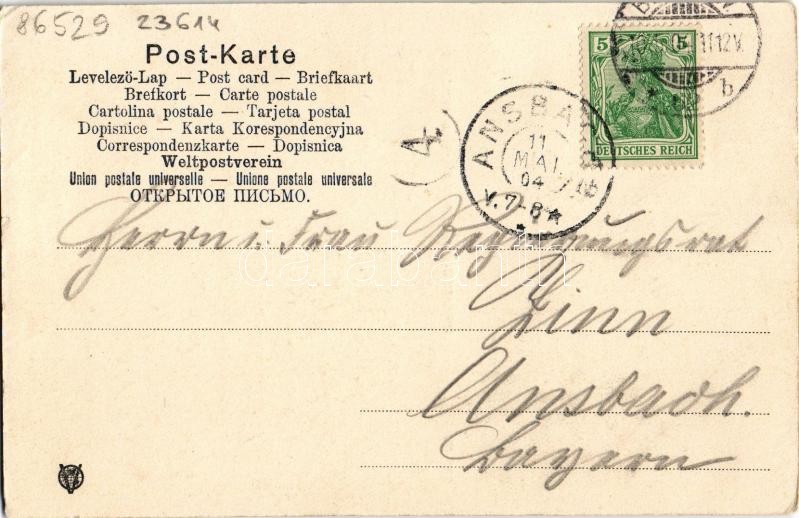 86529 23614
Post-Karte
Levelező-Lap — Post card — Briefkaart
Brefkort — Carte postale
Cartolina postale — Tarjeta postal
Dopisnice — Karta Korespondencyjna
Correspondenzkarte — Dopisnica
Weltpostverein
Union postale universelle — Unione postale universale
ОТКРЫТОЕ ПИСЬМО.
4
5 5
DEUTSCHES REICH
1112V.
b
ANSBA
11
MAI
04
V. 7-8
Herrn u. Frau Regierungsrat
Zinn
Ansbach.
Bayern
darabanth